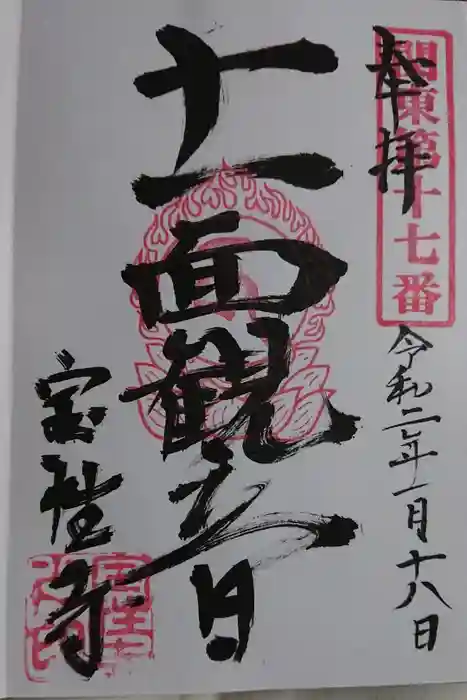 奉拝
関東第十七番
令和二年一月十八日
十一面観音
宝性寺